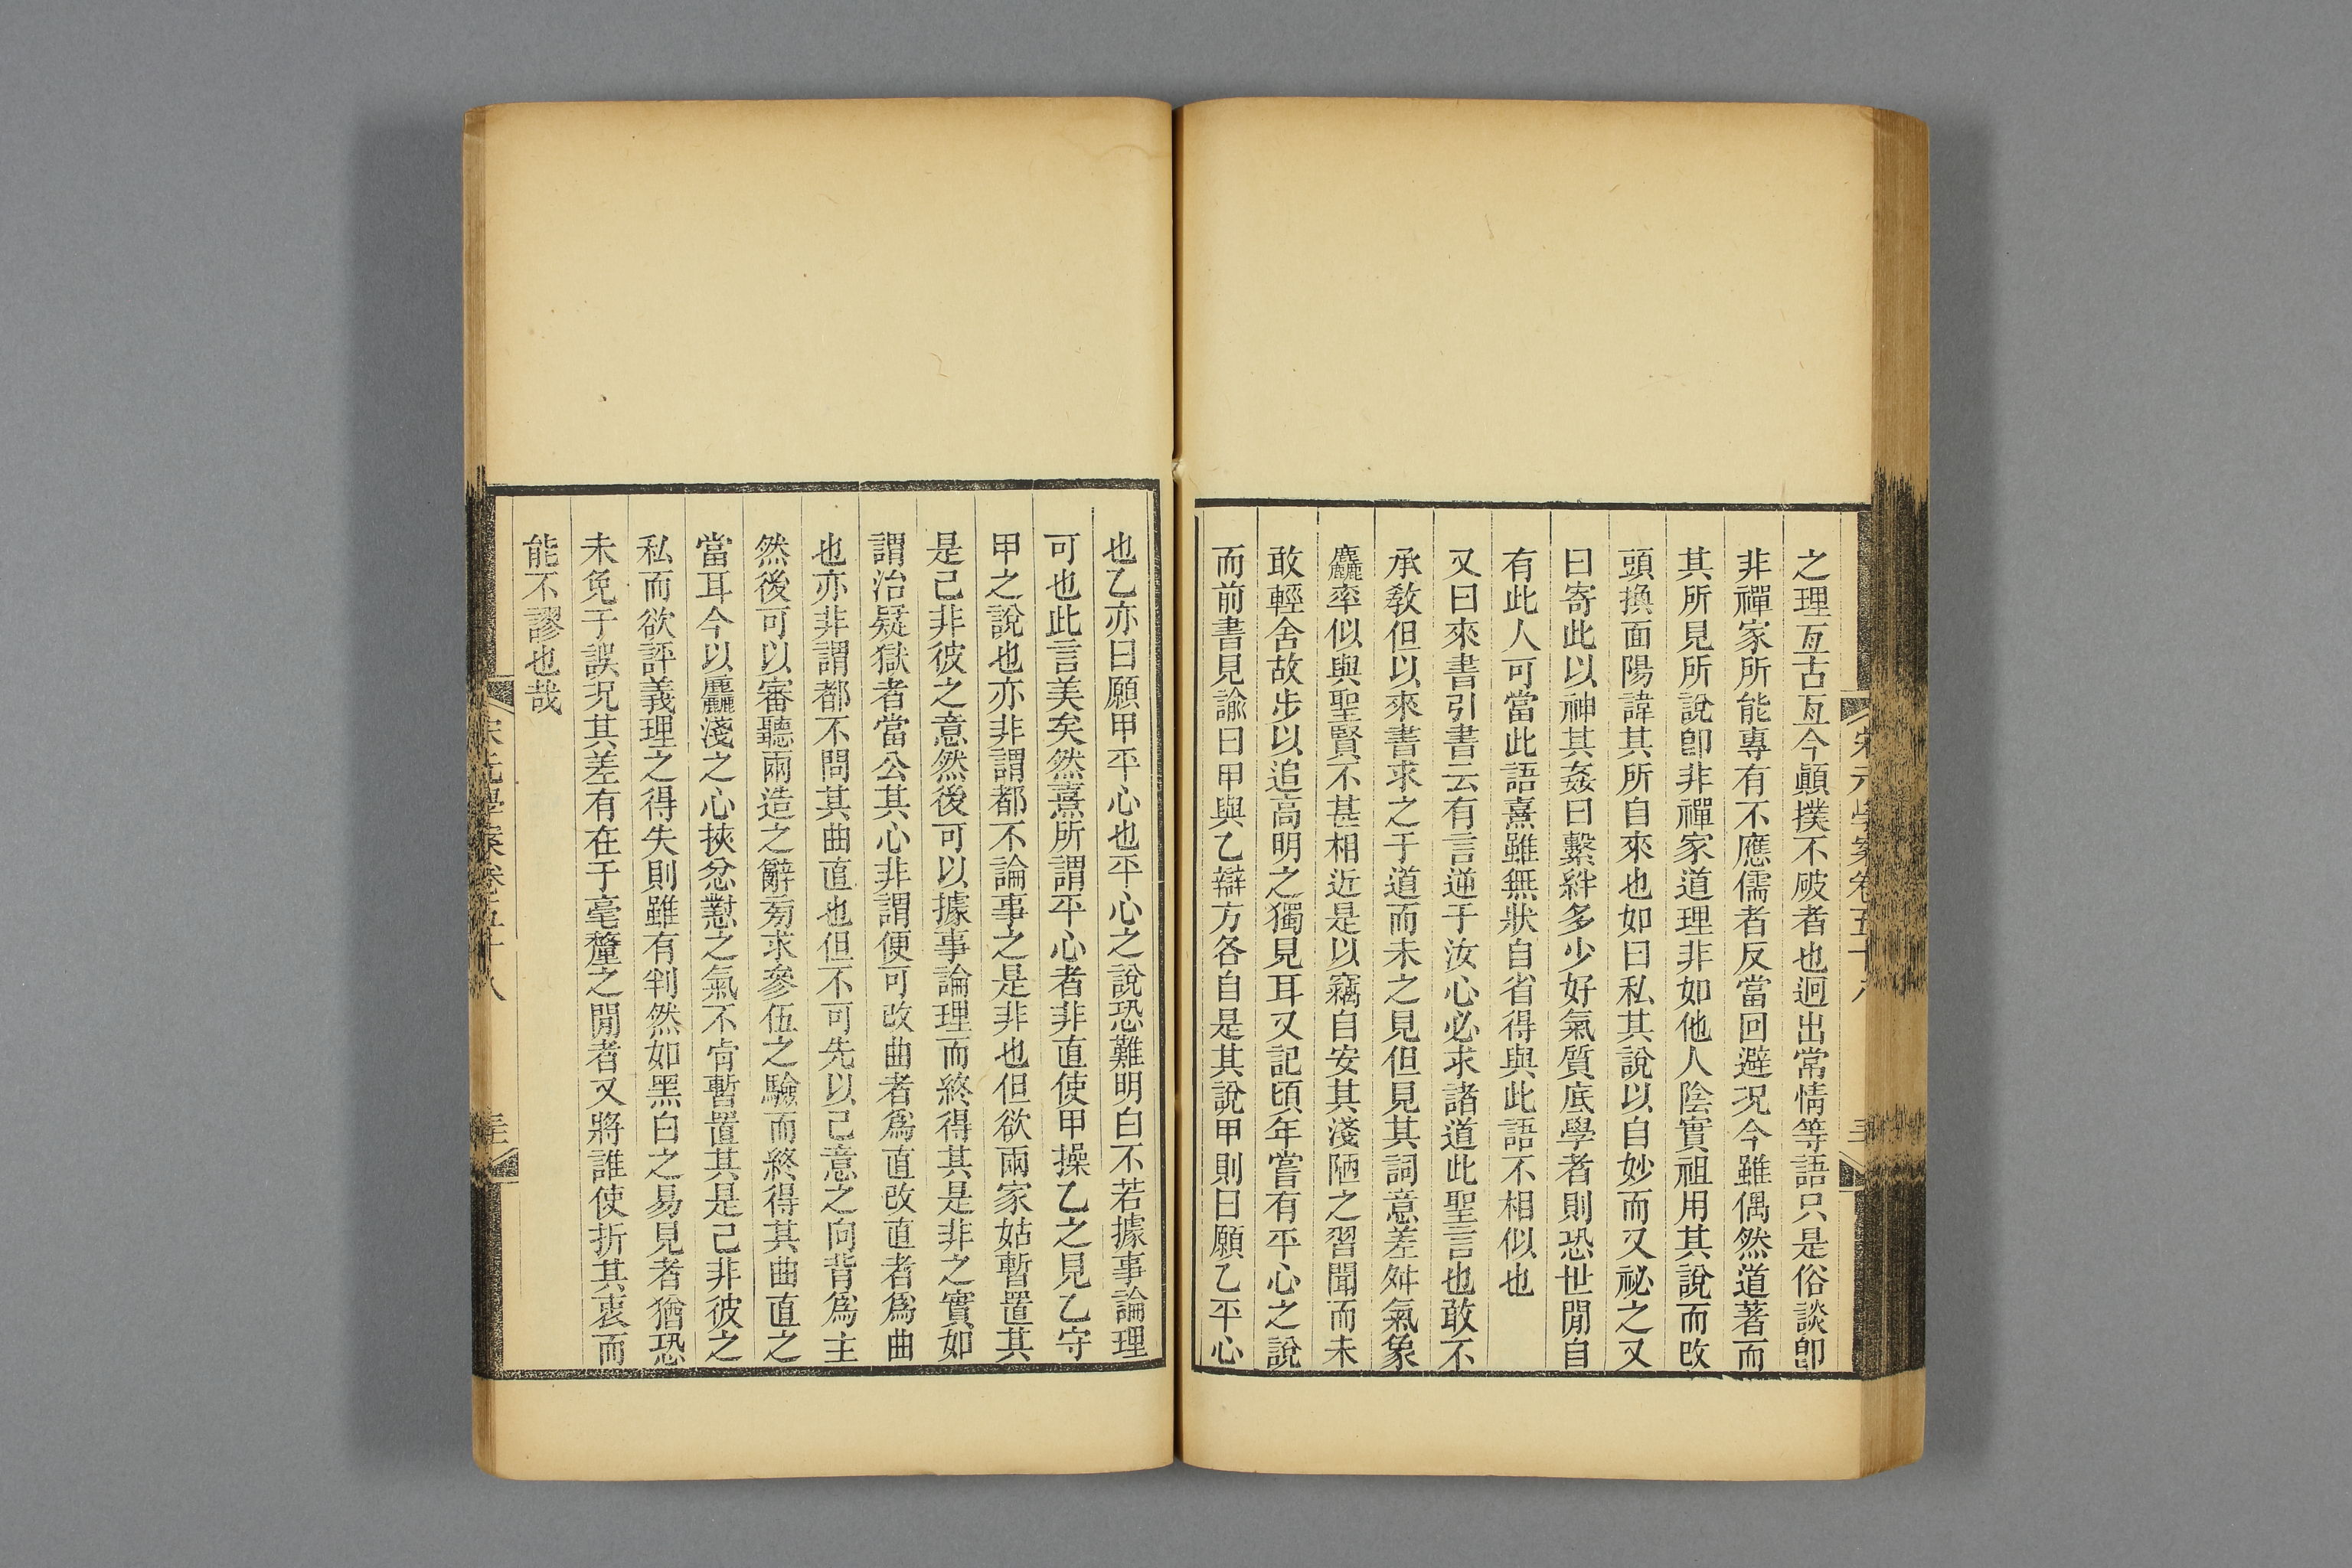 之理亙古亙今顚撲不破者也迥出常情等語只是俗談卽
非禪家所能專有不應儒者反當回避況今雖偶然道著而
其所見所說卽非禪家道理非如他人陰實祖用其說而改
頭換面陽諱其所自來也如曰私其說以自妙而又祕之又
曰寄此以神其姦曰繫絆多少好氣質底學者則恐世閒自
有此人可當此語熹雖無狀自省得與此語不相似也
又曰來書引書云有言逆于汝心必求諸道此聖言也敢不
承敎但以來書求之于道而未之見但見其詞意差舛氣象
麤率似與聖賢不甚相近是以竊自安其淺陋之習聞而未
敢輕舍故步以追高明之獨見耳又記頃年嘗有平心之說
而前書見諭曰甲與乙辯方各自是其說甲則曰願乙平心
也乙亦曰願甲平心也平心之說恐難明白不若據事論理
可也此言美矣然熹所謂平心者非直使甲操乙之見乙守
甲之說也亦非謂都不論事之是非也但欲兩家姑暫置其
是己非彼之意然後可以據事論理而終得其是非之實如
謂治疑獄者當公其心非謂便可改曲者爲直改直者爲曲
也亦非謂都不問其曲直也但不可先以己意之向背爲主
然後可以審聽兩造之辭旁求參伍之驗而終得其曲直之
當耳今以麤淺之心挾忿懟之氣不肯暫置其是己非彼之
私而欲評義理之得失則雖有判然如黑白之易見者猶恐
未免于誤況其差有在于毫釐之閒者又將誰使折其衷而
能不謬也哉
宋元學案卷五十八